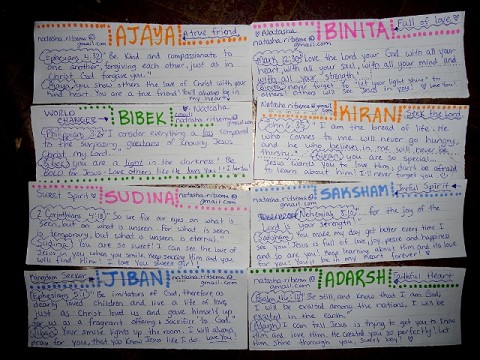 natasha.ritsema@
gmail.com
AJAYA
A true friend
Ephesians 4:32 "Be kind and compassionate to
one another, forgiving each other, just as in
Christ God forgave you."
Ajaya, you show others the love of Christ with your
kind heart. You are a true friend! I will always be in
my heart
Natasha
natasha.ritsema@
gmail.com
BINITA
Full of love
Mark 12:30 Love the Lord your God with all your
heart, with all your soul, with all your mind, and
with all your strength."
Binita, never forget to "let your light shine" to
others!
WORLD
CHANGER
BIBEK
Natasha
email:
natasha.ritsema@
gmail.com
Philippians 3:8 I consider everything a loss compared
to the surpassing greatness of knowing Jesus
Christ my Lord...
Bibek you are a light in the darkness! Be
BOLD for Jesus. Love others like He loves you!
Natasha.ritsema@
gmail.com
KIRAN
Seek the Lord
I am the bread of life. He
who comes to me will never go hungry,
and he who believes in me will never be
thirsty."
Kiran you are so special...
Jesus wants you to love Him; don't be afraid
to learn about Him! I'll never forget you
Sweet Spirit
SUDINA
natasha.ritsema@
gmail.com
2 Corinthians 4:18 So we fix our eyes on what is
seen, but on what is unseen. For what is seen
is temporary, but what is unseen is eternal."
Sudina: You are so sweet! I can see the love of
Jesus in you when you smile. Keep seeking Him and you
will find Him! I love you Sweet Girl!
natasha.ritsema@
gmail.com
SAKSHAM
Joyful Spirit
Nehemiah 8:10 for the joy of the
Lord is your strength"
Saksham: You make my day get better every time I
see you. Jesus is full of love, joy, peace and happiness
and so are you. Keep learning about Him and His love
for you. You're in my heart forever
Kingdom Seeker
JIBAN
natasha.ritsema@
gmail.com
Ephesians 5:1 Be imitators of God, therefore, as
dearly loved children and live a life of love,
just as Christ loved us and gave himself up
for us as a fragrant offering & sacrifice to God.
Jiban: Your smile lights up the room. I will always
pray for you, that you know Jesus like I do. Love You!
natasha.ritsema
@gmail.com
ADARSH
Faithful Heart
Psalm 46:10 Be still, and know that I am God;
I will be exalted among the nations, I will be
exalted in the earth."
Adarsh: I can tell Jesus is trying to get you to know
Him and love Him. He created you so perfectly! Let
Him shine through you, sweet boy!